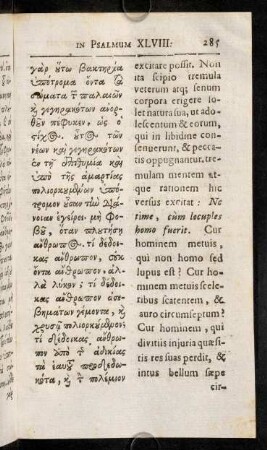 IN PSALMUM XLVIII. 285
γὰρ οὕτω βακτηρία
ὑπότρομα ὄντα τὰ
σώματα τ παλαιῶν
κ γεγηρακότων ἀνορ-
θοῦν πέφυκεν, ὡς ὁ
στίχος. οὗτος τῶν
νέων καὶ γεγηρακότων
ἐν τῇ ἐπιθυμίᾳ καὶ
ὑπὸ τῆς ἁμαρτίας
πολιορκουμένων ὑπό-
τρομον οὖσαν τὼ διά-
νοιαν ἐγείρει· μὴ φο-
βοῦ, ὅταν πλουτήσῃ
ἄνθρωπος. τί δέδοι-
κας ἄνθρωπον, οὐκ
ὄντα ἄνθρωπον, ἀλ-
λὰ λύκον; τί δέδοι-
κας ἄνθρωπον ἀσε-
βημάτων γέμοντα, κ
χρυσῷ πολιορκούμενον;
τί δέδοικας ἄνθρω-
πον ἀπὸ τ ἀδικίας
τὰ ἑαυτοῦ προδεδω-
κότα, κ τ πολέμιον
excitare possit. Non
ita scipio tremula
veterum atq; senum
corpora erigere so-
let natura sua, ut ado-
lescentum & eorum,
qui in libidine conse-
nuerunt, & pecca-
tis oppugnantur, tre-
mulam mentem at-
que rationem hic
versus excitat: Ne
time, cùm locuples
homo fuerit. Cur
hominem metuis,
qui non homo sed
lupus est? Cur ho-
minem metuis scele-
ribus scatentem, &
auro circumseptum?
Cur hominem, qui
divitiis injuria quæsi-
tis res suas perdit, &
intus bellum sæpe
cir-